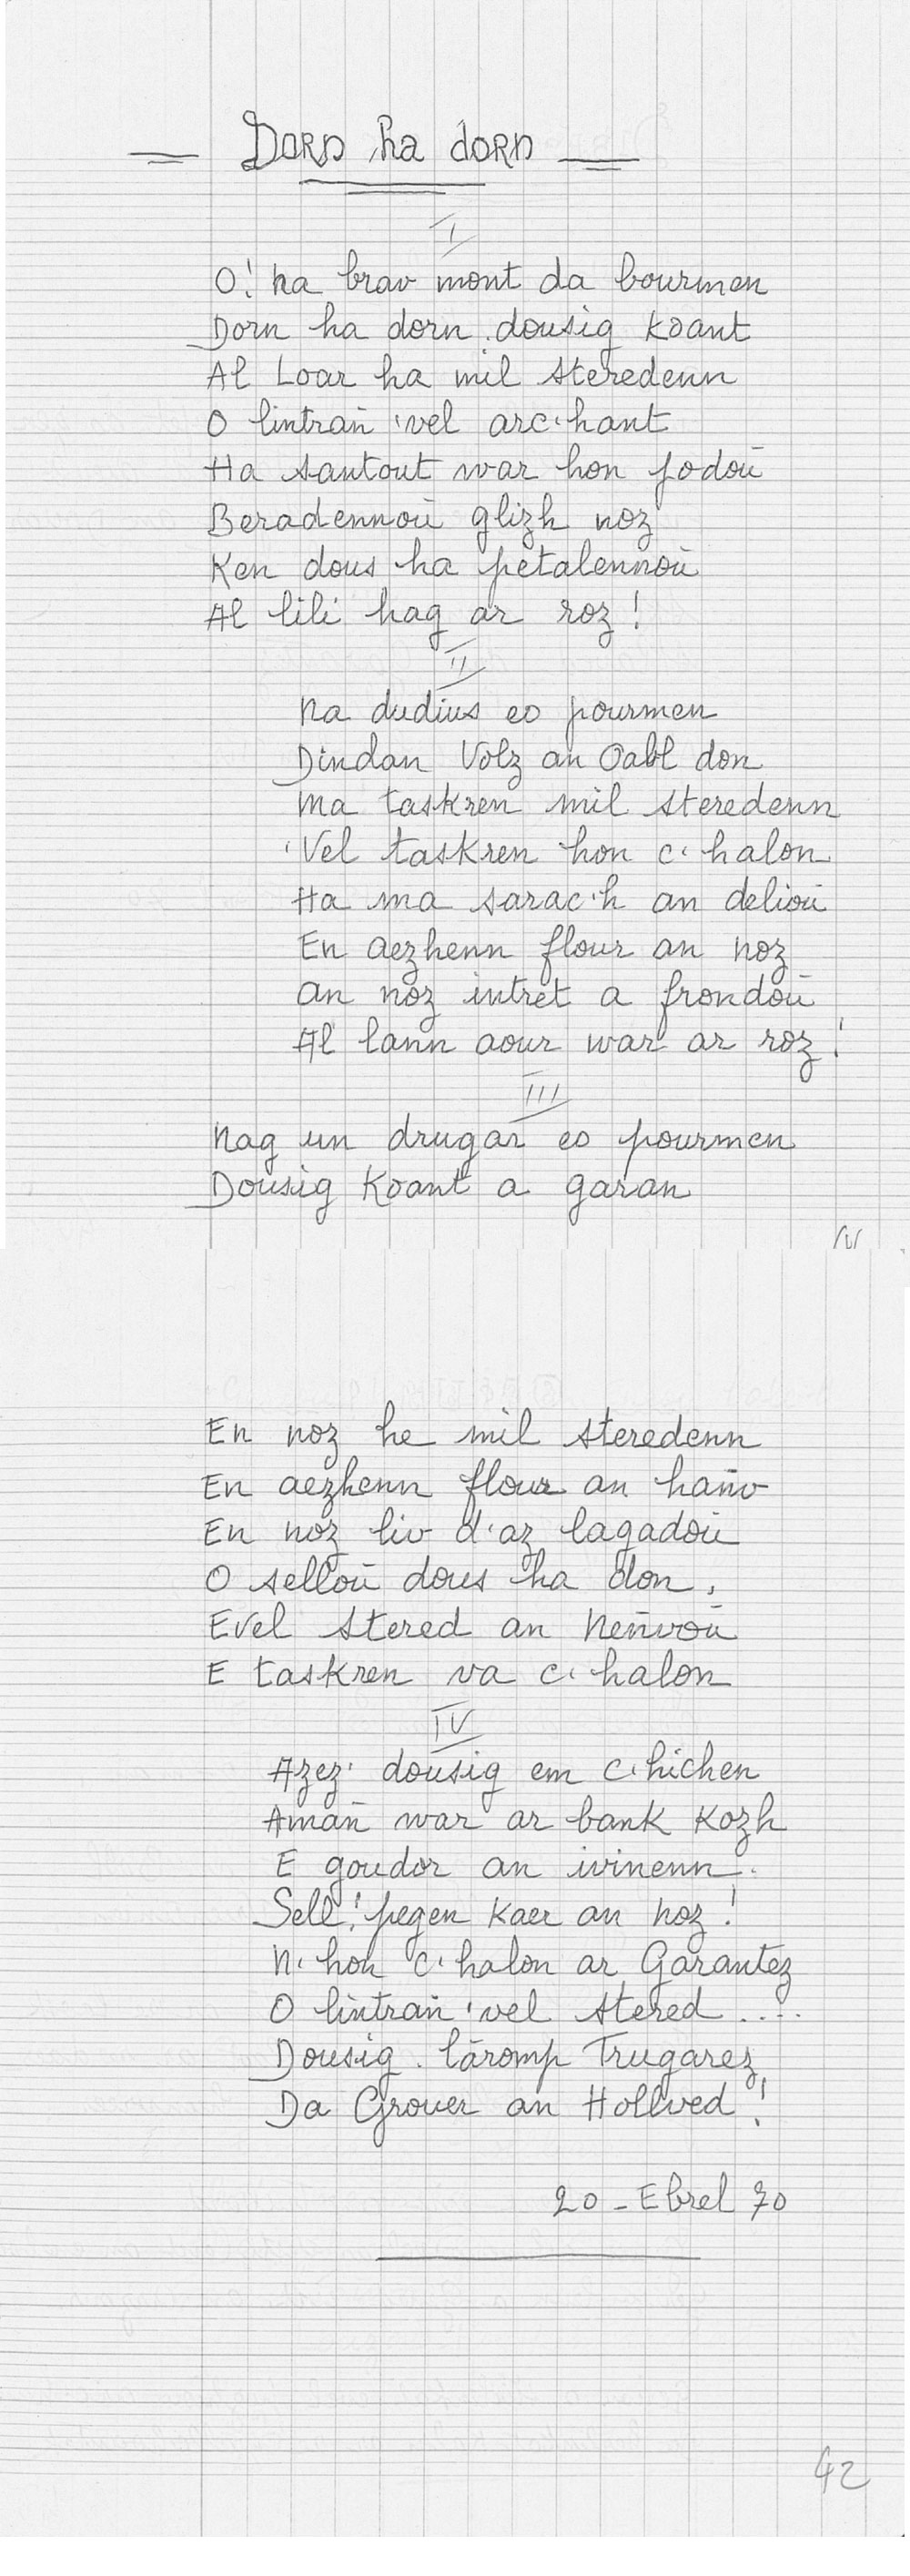 Dorn ha dorn
I
O! na brav mont da bourmen
Dorn ha dorn, dousig Koant
Al Loar ha mil steredenn
O lintrañ 'vel arc'hant
Ha santout war hon jodoù
Beradennoù glizh noz
Ken dous ha petalennoù
Al lili hag ar roz!
II
Na dudius eo pourmen
Dindan Volz an Oabl don
Ma taskren mil steredenn
'Vel taskren hon c'halon
Ha ma sarac'h an delioù
En aezhenn flour an noz
An noz intret a frondoù
Al lann aour war ar roz!
III
Nag un drugar eo pourmen
Dousig Koant a garan
En noz he mil steredenn
En aezhenn flour an hañv
En noz liv d'az lagadoù
O selloù dous ha don,
Evel stered an Neñvoù
E taskren va c'halon
IV
Azez' dousig em c'hichen
Amañ war ar bank Kozh
E goudor an ivinenn.
Sell! pegen Kaer an noz!
N' hon c'halon ar Garantez
O lintrañ 'vel stered ....
Dousig. lâromp Trugarez
Da Grouer an Hollved!
20 - Ebrel 70
42